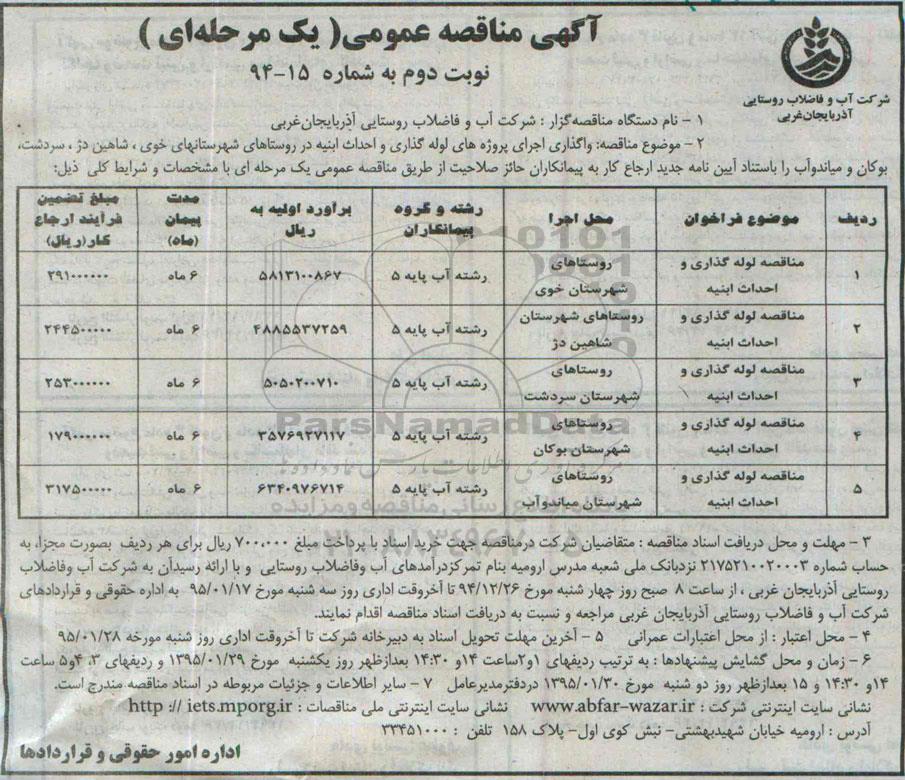 آگهی مناقصه عمومی( یک مرحله‌ای )
نوبت دوم به شماره ۱۵-۹۴
شرکت آب و فاضلاب روستایی
آذربایجان‌غربی
۱ – نام دستگاه مناقصه‌گزار : شرکت آب و فاضلاب روستایی آذربایجان‌غربی
۲ – موضوع مناقصه: واگذاری اجرای پروژه های لوله گذاری و احداث ابنیه در روستاهای شهرستانهای خوی ، شاهین دژ ، سردشت،
بوکان و میاندوآب را باستناد آیین نامه جدید ارجاع کار به پیمانکاران حائز صلاحیت از طریق مناقصه عمومی یک مرحله ای با مشخصات و شرایط کلی ذیل:
ردیف موضوع فراخوان محل اجرا رشته و گروه پیمانکاران برآورد اولیه به ریال مدت پیمان (ماه) مبلغ تضمین فرآیند ارجاع کار(ریال)
۱ مناقصه لوله گذاری و احداث ابنیه روستاهای شهرستان خوی رشته آب پایه ۵ ۵۸۱۳۱۰۰۸۶۷ ۶ ماه ۲۹۱۰۰۰۰۰۰
۲ مناقصه لوله گذاری و احداث ابنیه روستاهای شهرستان شاهین دژ رشته آب پایه ۵ ۴۸۸۵۵۳۷۲۵۹ ۶ ماه ۲۴۴۵۰۰۰۰۰
۳ مناقصه لوله گذاری و احداث ابنیه روستاهای شهرستان سردشت رشته آب پایه ۵ ۵۰۵۰۲۰۰۷۱۰ ۶ ماه ۲۵۳۰۰۰۰۰۰
۴ مناقصه لوله گذاری و احداث ابنیه روستاهای شهرستان بوکان رشته آب پایه ۵ ۳۵۷۶۹۳۷۱۱۷ ۶ ماه ۱۷۹۰۰۰۰۰۰
۵ مناقصه لوله گذاری و احداث ابنیه روستاهای شهرستان میاندوآب رشته آب پایه ۵ ۶۳۴۰۹۷۶۷۱۴ ۶ ماه ۳۱۷۵۰۰۰۰۰
ParsNamadData
۳ – مهلت و محل دریافت اسناد مناقصه : متقاضیان شرکت درمناقصه جهت خرید اسناد با پرداخت مبلغ ۷۰۰،۰۰۰ ریال برای هر ردیف بصورت مجزا، به
حساب شماره ۲۱۷۵۲۱۰۰۲۰۰۰۳ نزدبانک ملی شعبه مدرس ارومیه بنام تمرکزدرآمدهای آب وفاضلاب روستایی و با ارائه رسیدآن به شرکت آب وفاضلاب
روستایی آذربایجان غربی ، از ساعت ۸ صبح روز چهار شنبه مورخ ۹۴/۱۲/۲۶ تا آخروقت اداری روز سه شنبه مورخ ۹۵/۰۱/۱۷ به اداره حقوقی و قراردادهای
شرکت آب و فاضلاب روستایی آذربایجان غربی مراجعه و نسبت به دریافت اسناد مناقصه اقدام نمایند.
۴ – محل اعتبار : از محل اعتبارات عمرانی ۵ – آخرین مهلت تحویل اسناد به دبیرخانه شرکت تا آخروقت اداری روز شنبه مورخه ۹۵/۰۱/۲۸
۶ – زمان و محل گشایش پیشنهادها : به ترتیب ردیفهای ۱و۲ساعت ۱۴و ۱۴:۳۰ بعدازظهر روز یکشنبه مورخ ۱۳۹۵/۰۱/۲۹ و ردیفهای ۳، ۴و۵ ساعت
۱۴و ۱۴:۳۰ و ۱۵ بعدازظهر روز دو شنبه مورخ ۱۳۹۵/۰۱/۳۰ دردفترمدیرعامل ۷ – سایر اطلاعات و جزئیات مربوطه در اسناد مناقصه مندرج است.
نشانی سایت اینترنتی شرکت : www.abfar-wazar.ir نشانی سایت اینترنتی ملی مناقصات : http :// iets.mporg.ir
آدرس : ارومیه خیابان شهیدبهشتی– نبش کوی اول– پلاک ۱۵۸ تلفن : ۳۳۴۵۱۰۰۰
اداره امور حقوقی و قراردادها